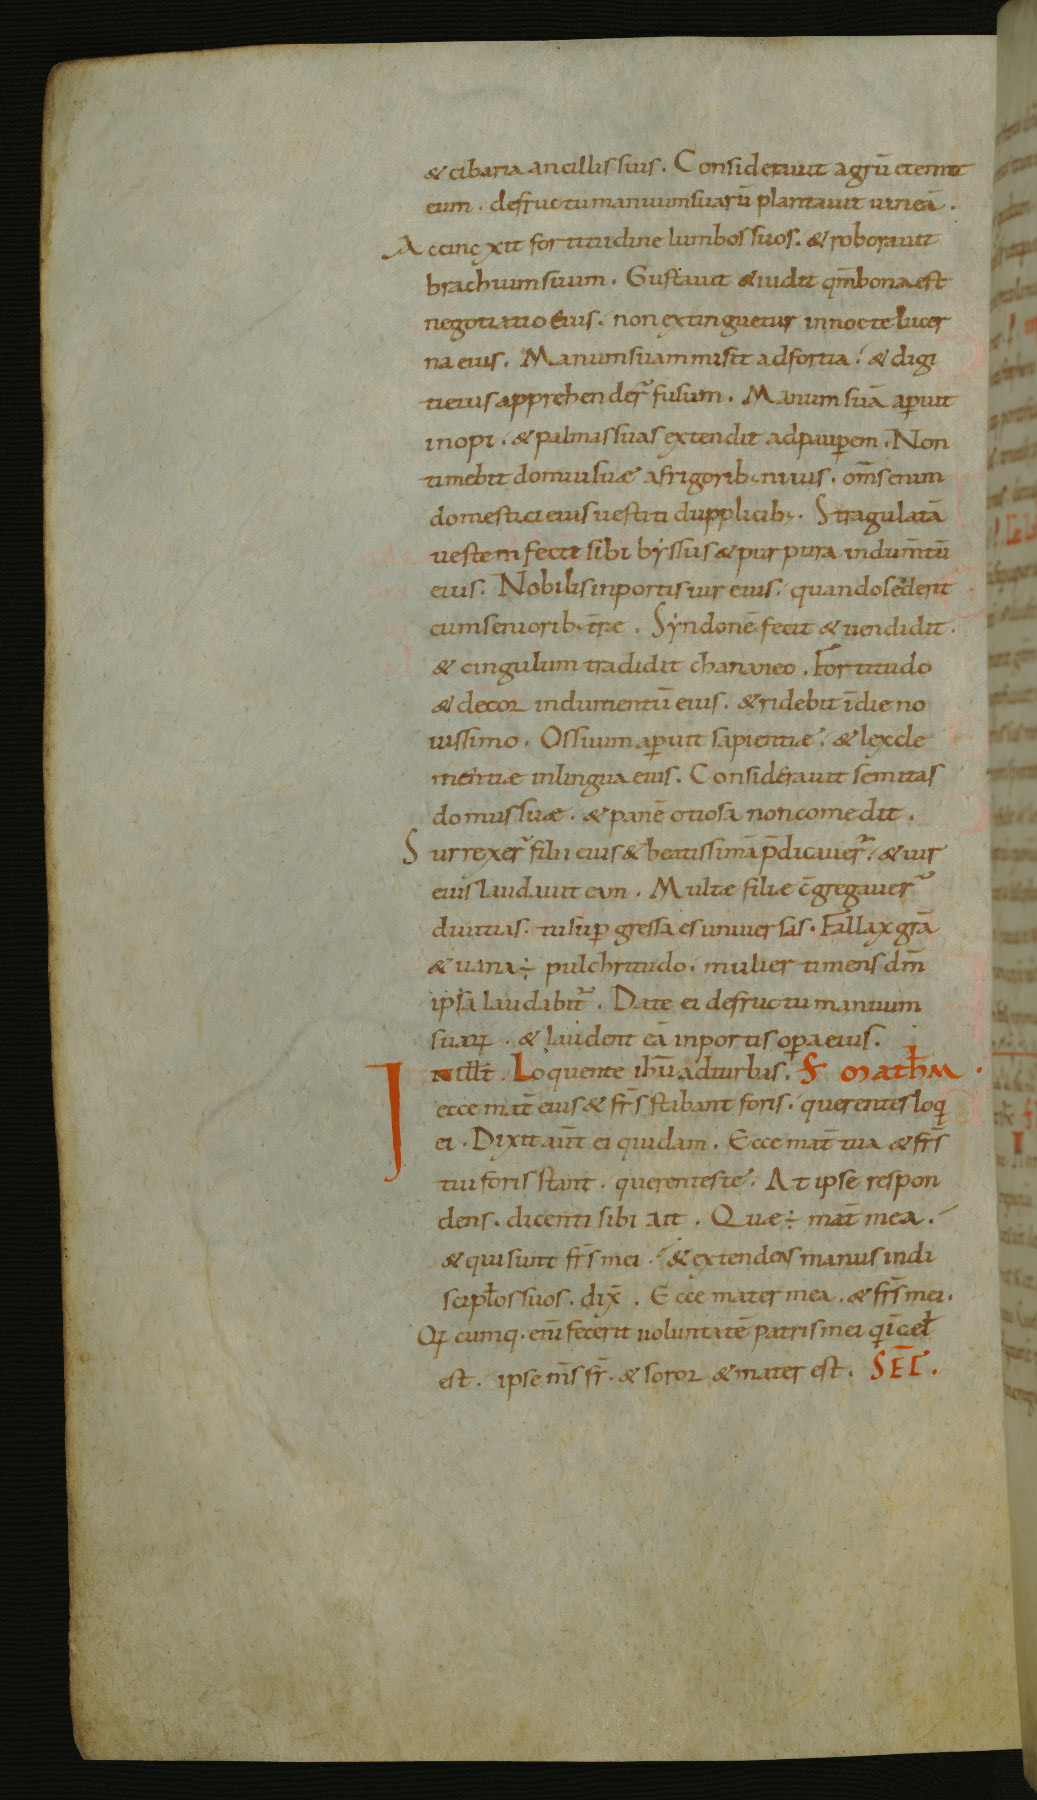 & cibaria ancillis suis. Considerauit agrū et emit
eum. de fructu manuum suarū plantauit uineā.
Accincxit fortitudine lumbos suos. & roborauit
brachium suum. Gustauit & uidit qm̄ bona est
negotiatio eius. non extinguetur in nocte lucer
na eius. Manum suam misit ad fortia. & digi
ti eius apprehender̄ fusum. Manum suā aꝑuit
inopi. & palmas suas extendit ad pauꝑem. Non
timebit domui suæ a frigorib; niuis. om̄s enim
domestici eius uestiti dupplicib;. Stragulatā
uestem fecit sibi byssus & purpura indumtū
eius. Nobilis in portis uir eius. quando sederit
cum seniorib; tr̄æ. Syndonē fecit & uendidit.
& cingulum tradidit chananeo. Fortitudo
& decor indumentū eius. & ridebit ī die no
uissimo. Os suum aꝑuit sapientiæ. & lex cle
mentiæ in lingua eius. Considerauit semitas
domus suæ. & panē otiosa non comedit.
Surrexer̄ filii eius & beatissimā p̄dicauer̄. & uir
eius laudauit eam. Multæ filiæ c̄gregauer̄
diuitias. tu suꝑgressa es uniuersas. Fallax gr̄a
& uana ÷ pulchritudo. mulier timens dm̄
ipsa laudabit̄. Date ei de fructu manuum
suaꝝ. & laudent eā in portis oꝑa eius.
In ill t̄. Loquente ih̄u ad turbas. S̄ Math̄m.
ecce mat̄ eius & fr̄s stabant foris. querentes loq̄
ei. Dixit aūt ei quidam. Ecce mat̄ tua & fr̄s
tui foris stant. querentes te. At ipse respon
dens. dicenti sibi ait. Quæ ÷ mat̄ mea.
& qui sunt fr̄s mei. & extendens manus in di
scipłos suos. dix̄. Ecce mater mea. & fr̄s mei.
Qicumq. enī fecerit uoluntatē patris mei qī cęł
est. ipse m̄s fr̄. & soror & mater est. SĒC̄.